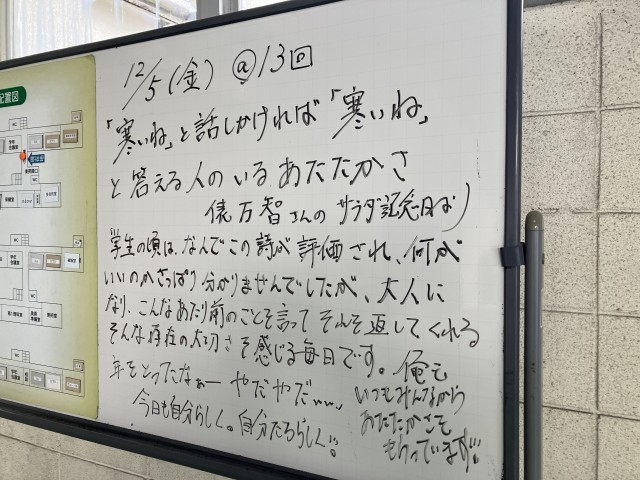 配置図
12/5(金) @13回
「寒いね」と話しかければ「寒いね」
と答える人のいるあたたかさ
俵万智さんの サラダ記念日より
学生の頃は、なんでこの詩が評価され、何が
いいのかさっぱり分かりませんでしたが、大人に
なり、こんなあたり前のことを言って それを返してくれる
そんな存在の大切さを感じる毎日です。
年をとったなぁー やだやだ〰
今日も自分らしく。自分たちらしく!!
俺も
いつもみんなから
あたたかさを
もらっています!!